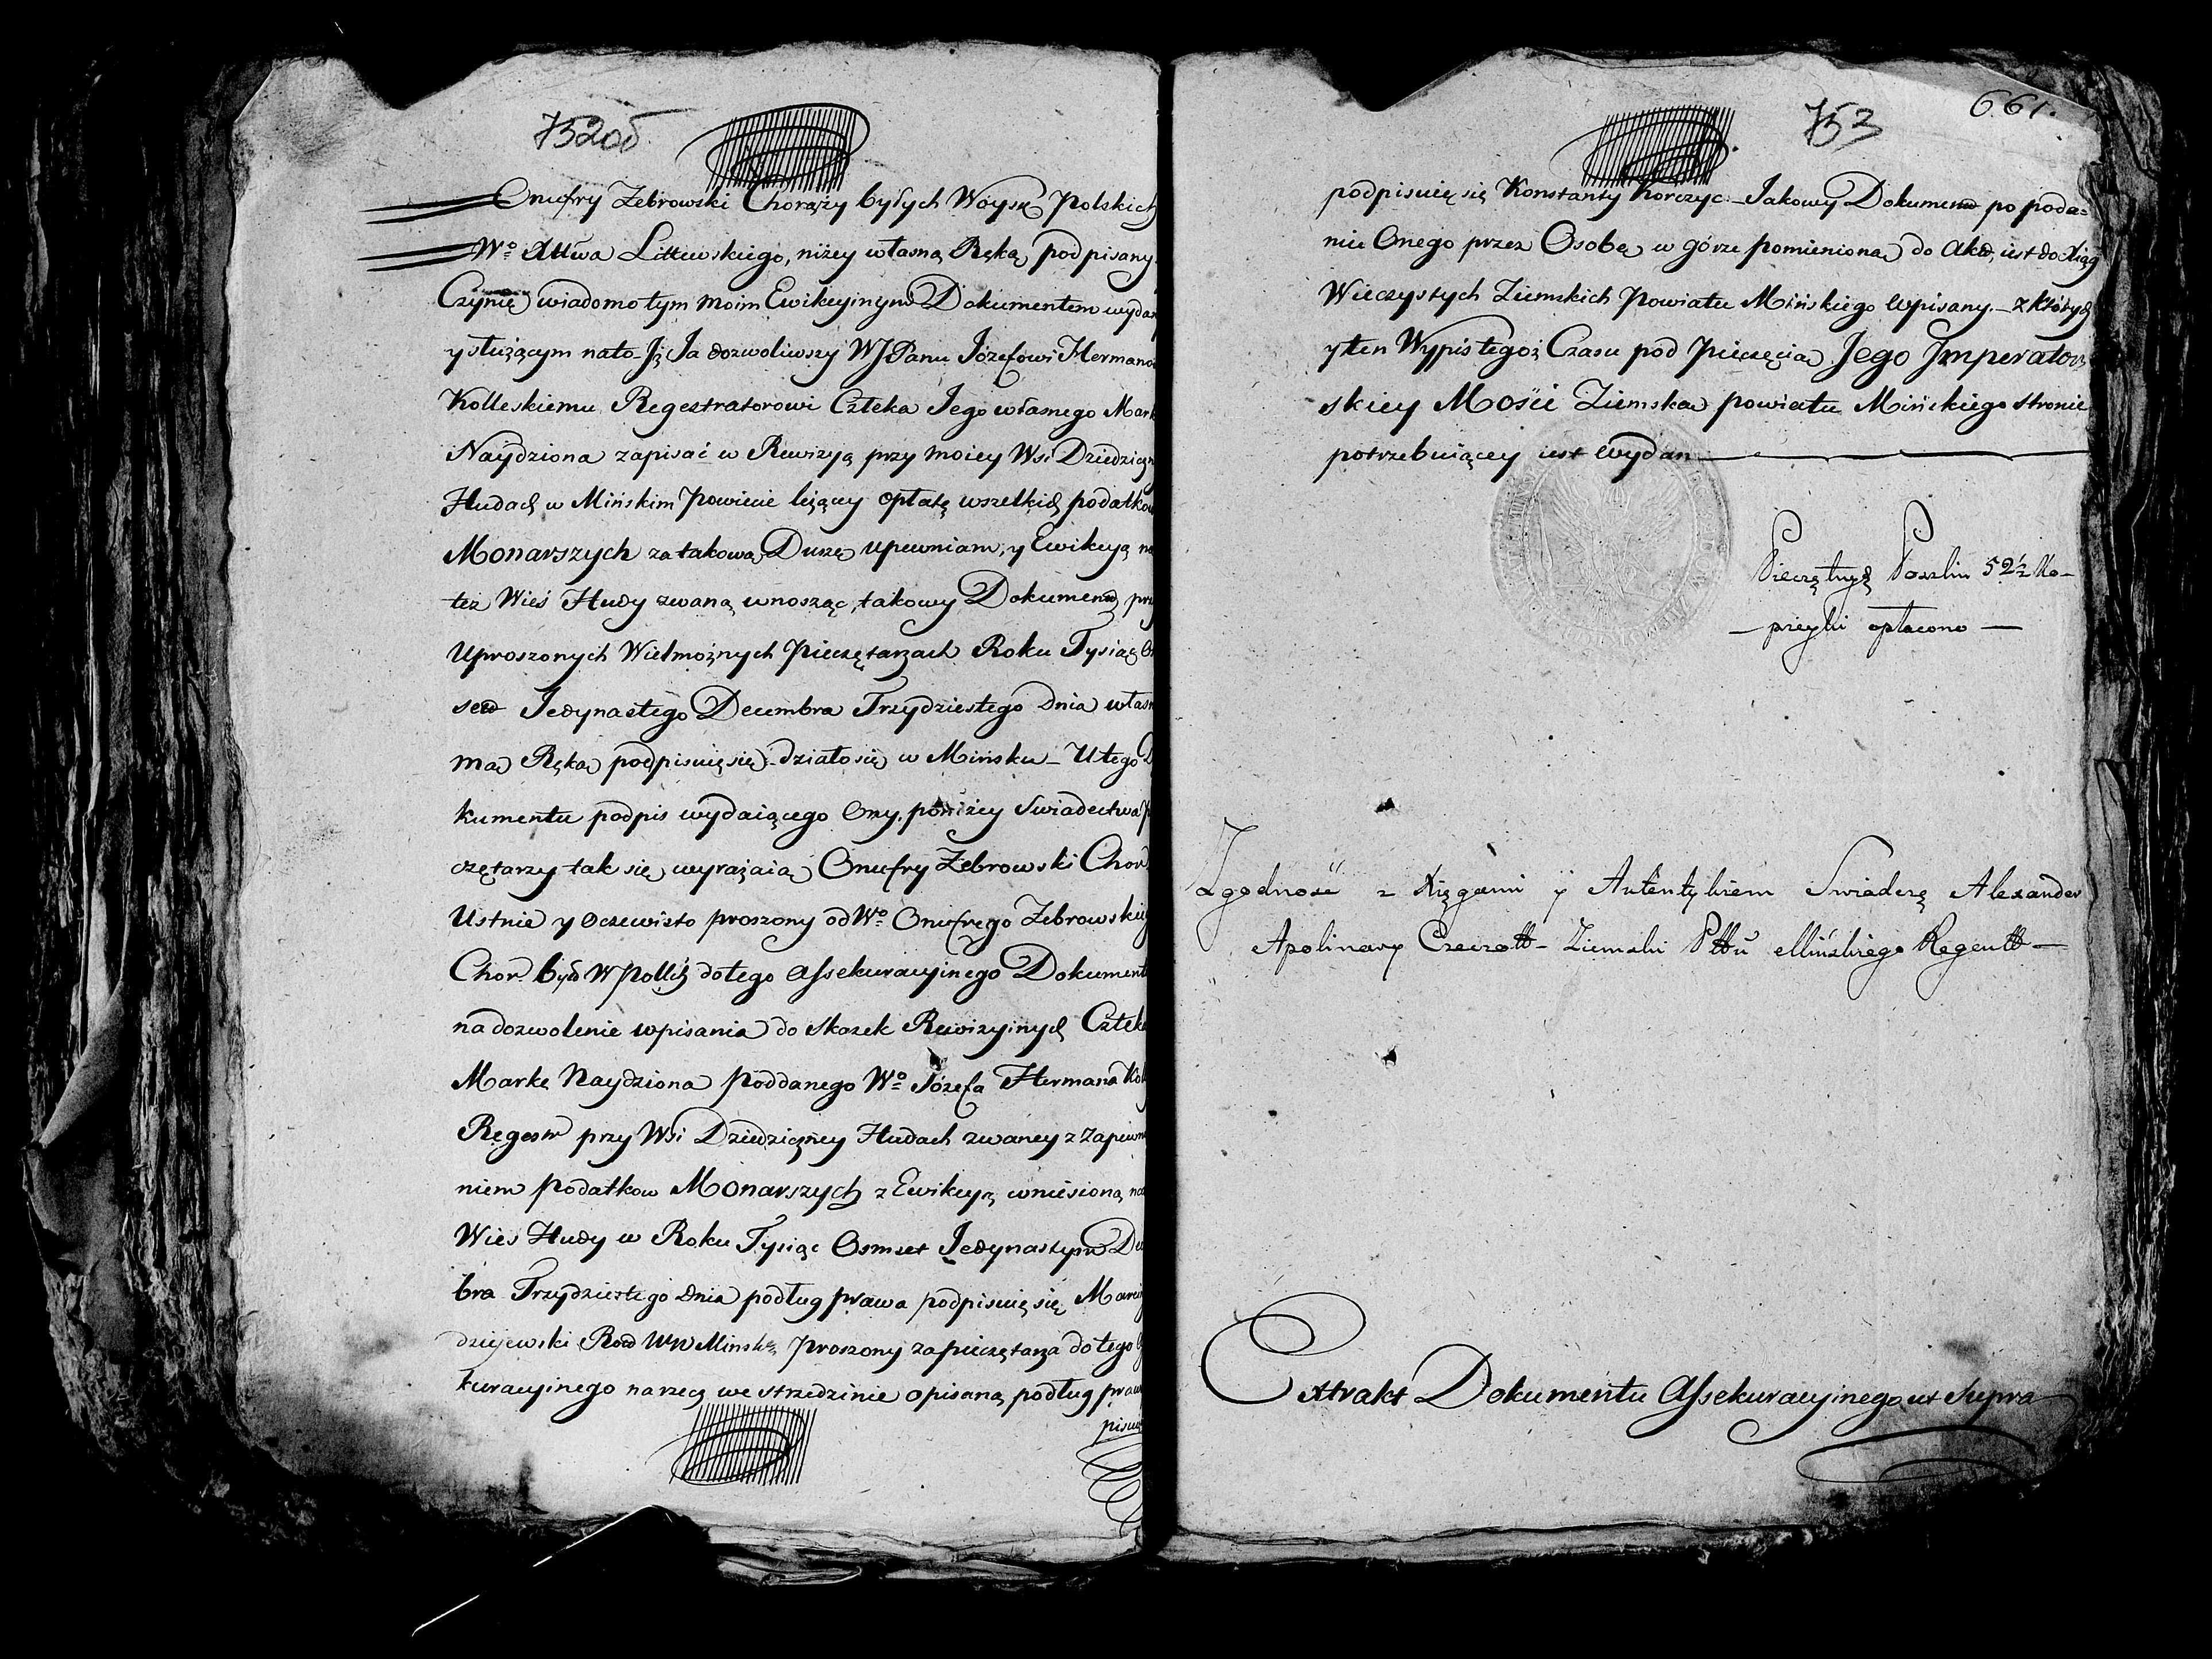 752об
Onufry Żebrowski Chorąży byłych Woysk Polskich
Wo Xttwa Littewskiego, niżey własną Ręką podpisany
Czynię wiadomo tym moim Ewikcyinym Dokumentem wydan
y służącym na to – Jż Ja dozwoliwszy WJPanu Józefowi Hermano
Kolleskiemu Regestratorowi Człeka Jego własnego Mark
Naydziona zapisać w Rewizyą przy moiey Wsi Dziedziczn
Hudach w Mińskim Powiecie leżący opłatę wszelkich podatkow
Monarszych za takową Duszę upewniam, y Ewikcyą na
też Wieś Hudy zwaną wnosząc, takowy Dokument przy
Uproszonych Wielmożnych Pieczętarzach Roku Tysiąc O
set Jedynastego Decembra Trzydziestego Dnia własn
mą Ręką podpisuię się – działo się w Mińsku – U tego D
kumentu podpis wydaiącego ony, poniżey Swiadectwa P
czętarzy tak się wyrażaią Onufry Żebrowski Chor
Ustnie y Oczewisto proszony od Wo Onufrego Żebrowskieg
Chor. był W Pollch do tego Assekuracyinego Dokument
na dozwolenie wpisania do Skazek Rewizyinych Człeka
Marka Naydziona poddanego Wo Józefa Hermana Kol
Regestr przy Wsi Dziedziczney Hudach zwaney z Zapewn
niem podatkow Monarszych z Ewikcyą wniesioną na
Wieś Hudy w Roku Tysiąc Osmset Jedynastym De
bra Trzydziestego Dnia podług prawa podpisuię się Marci
dziejewski Rod WW Minski, Proszony za pieczętarza do tego
kuracyinego na rzecz we strzedzinie opisaną podług praw
pisuię
753
661.
podpisuię się Konstanty Korczyc – Jakowy Dokument po poda=
niu Onego przez Osobę w górze pomienioną do Akt, iest do Xiąg
Wieczystych Ziemskich Powiatu Mińskiego wpisany – z których
y ten Wypis tegoż Czasu pod Pieczęcią Jego Jmperators
skiey Mości Ziemską powiatu Mińskiego stronie
potrzebuiącey iest wydan
Pieczętnych Poszlin 52½ Ko–
– pieyki opłacono –
Zgodność z Xięgami y Autentykiem Swiadczę Alexander
Apolinary Czeczott – Ziemski Pttu Mińskiego Regentt –
Extrakt Dokumentu Assekuracyinego ut Supra